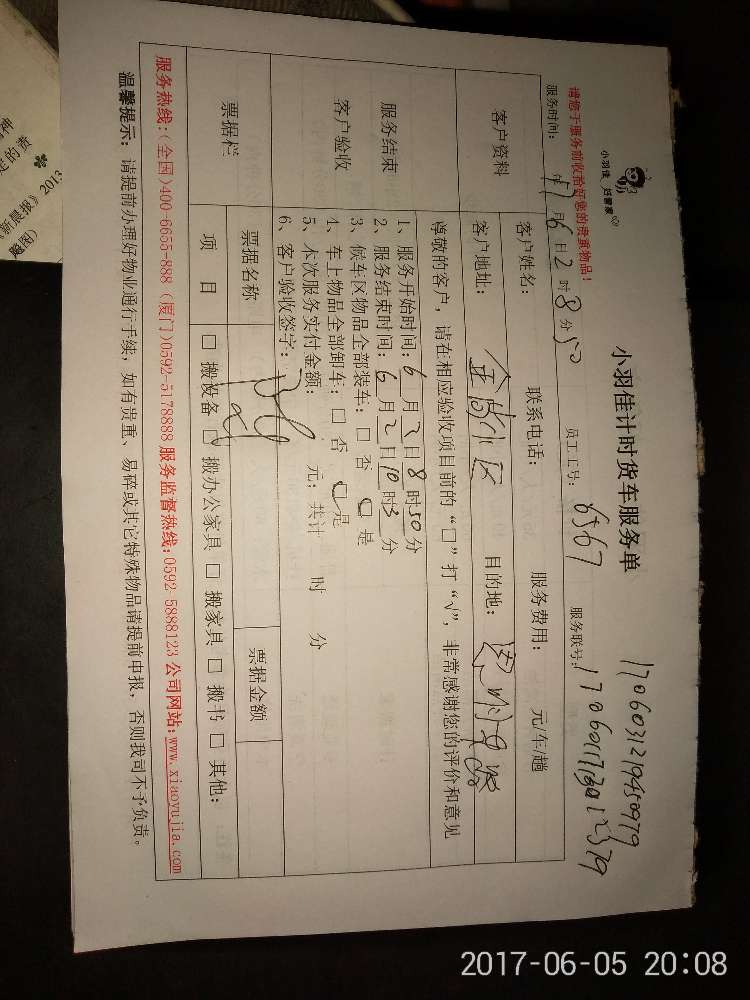 小羽佳 好管家
小羽佳计时货车服务单
1706031219450979
请您于服务前收拾好您的贵重物品!
服务时间: 17年6月2日8时50分 员工工号: 6567 服务联号:
客户资料
客户姓名: 联系电话: 服务费用: 元/车/趟
客户地址: 金尚小区 目的地:
尊敬的客户,请在相应验收项目前的“□”打“√”,非常感谢您的评价和意见
服务结束
客户验收
1、服务开始时间:6月2日8时50分
2、服务结束时间:6月2日10时3分
3、候车区物品全部装车:□否 □是
4、车上物品全部卸车:□否 □是
5、本次服务实付金额: 元;共计 时 分
6、客户验收签字:
票据栏
票据名称 票据金额
项 目 □ 搬设备 □ 搬办公家具 □ 搬家具 □ 搬书 □ 其他:
服务热线:(全国)400-6655-888 (厦门)0592-5178888 服务监督热线:0592-5888123 公司网站:www.xiaoyujia.com
温馨提示: 请提前办理好物业通行手续,如有贵重、易碎或其它特殊物品请提前申报,否则我司不予负责。
神
定的责
新晨报》2013
题图)
2017-06-05 20:08